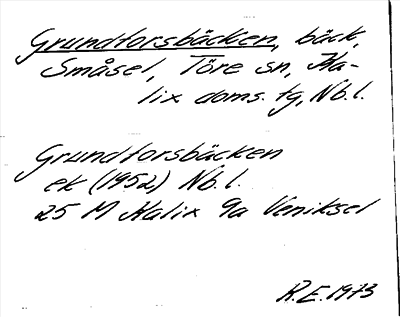 Grundforsbäcken, bäck,
Småsel, Töre sn, Ka-
lix doms. tg, Nb. l.
Grundforsbäcken
ek (1952) Nb. l.
25 M Kalix 9a Veniksel
R.E. 1973